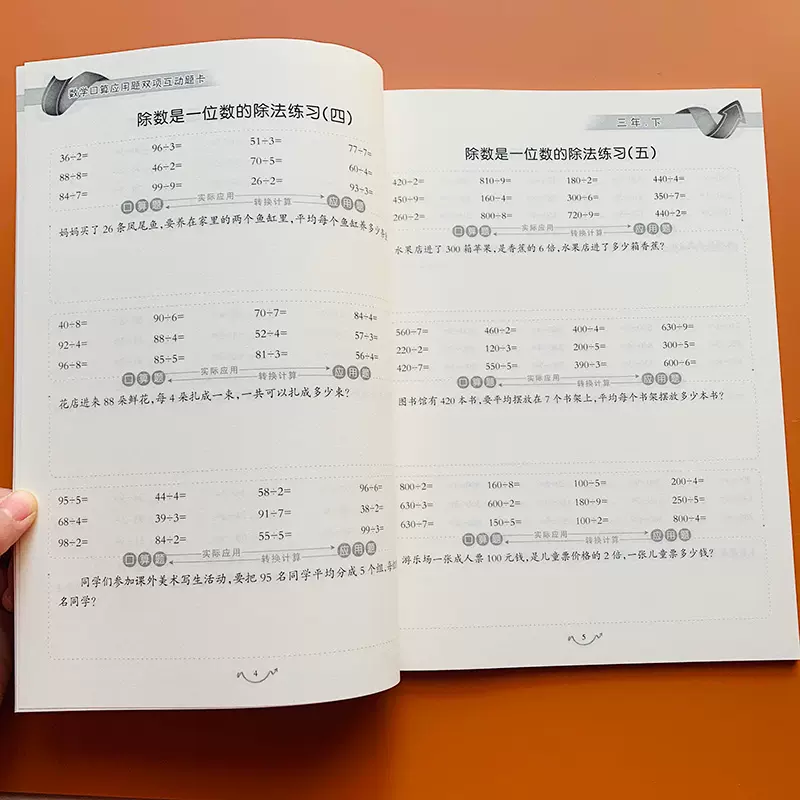 数学口算应用题双项互动题卡
除数是一位数的除法练习(四)
36÷2= 96÷3= 51÷3= 77÷7=
88÷8= 46÷2= 70÷5= 60÷4=
84÷7= 99÷9= 26÷2= 93÷3=
口算题 实际应用 转换计算 应用题
妈妈买了 26 条凤尾鱼,要养在家里的两个鱼缸里,平均每个鱼缸养多少条
40÷8= 90÷6= 70÷7= 84÷4=
92÷4= 88÷4= 52÷4= 57÷3=
96÷8= 85÷5= 81÷3= 56÷4=
口算题 实际应用 转换计算 应用题
花店进来 88 朵鲜花,每 4 朵扎成一束,一共可以扎成多少束?
95÷5= 44÷4= 58÷2= 96÷6=
68÷4= 39÷3= 91÷7= 38÷2=
98÷2= 84÷2= 55÷5= 99÷3=
口算题 实际应用 转换计算 应用题
同学们参加课外美术写生活动,要把 95 名同学平均分成 5 个组,每
名同学?
4
三年.下
除数是一位数的除法练习(五)
420÷2= 810÷9= 180÷2= 440÷4=
450÷9= 160÷4= 300÷6= 350÷7=
260÷2= 800÷8= 720÷9= 440÷2=
口算题 实际应用 转换计算 应用题
水果店进了 300 箱苹果,是香蕉的 6 倍,水果店进了多少箱香蕉?
560÷7= 460÷2= 400÷4= 630÷9=
220÷2= 120÷3= 200÷5= 300÷5=
420÷7= 550÷5= 390÷3= 600÷6=
口算题 实际应用 转换计算 应用题
图书馆有 420 本书,要平均摆放在 7 个书架上,平均每个书架摆放多少本书?
800÷2= 160÷8= 100÷5= 200÷4=
630÷3= 600÷2= 180÷9= 250÷5=
630÷7= 150÷5= 100÷2= 800÷4=
口算题 实际应用 转换计算 应用题
游乐场一张成人票 100 元钱,是儿童票价格的 2 倍,一张儿童票多少钱?
5